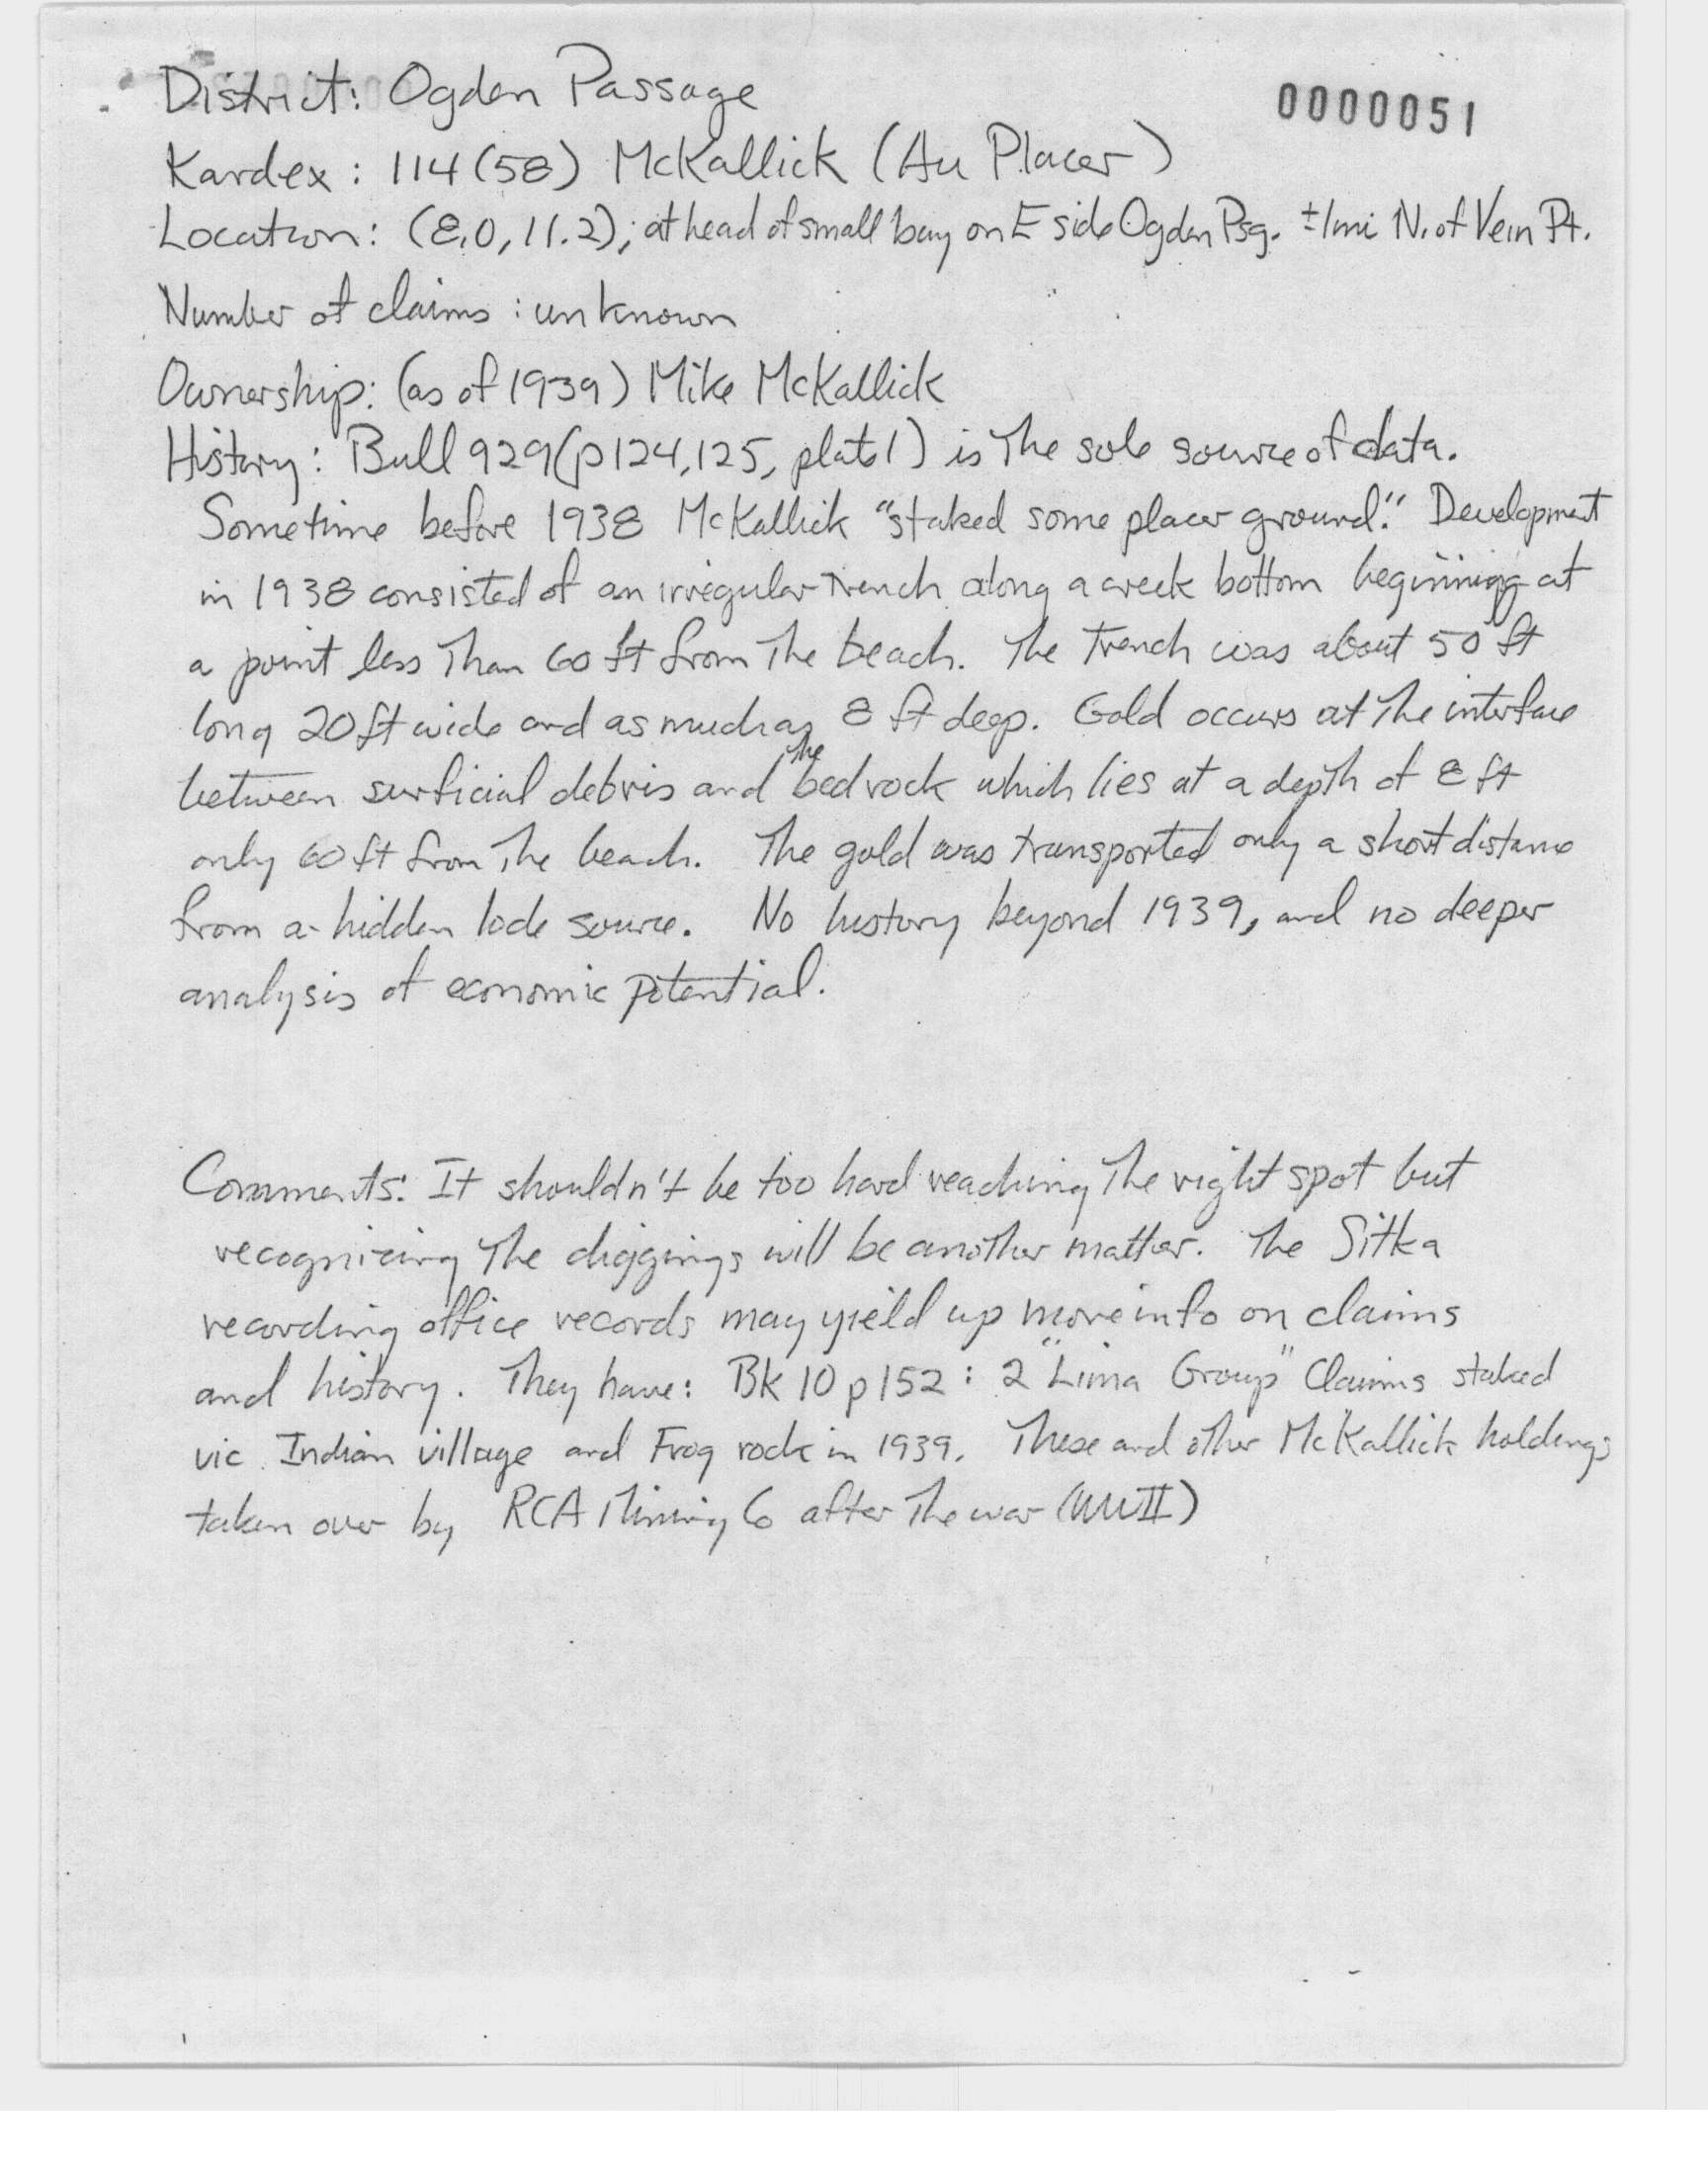 District: Ogden Passage
0000051
Kardex: 114(58) McKallick (Au Placer)
Location: (8.0, 11.2); at head of small bay on E side Ogden Psg. ±1mi N. of Vein Pt.
Number of claims: unknown
Ownership: (as of 1939) Mike McKallick
History: Bull 929(p124,125, plate 1) is the sole source of data.
Sometime before 1938 McKallick "staked some placer ground." Development
in 1938 consisted of an irregular trench along a creek bottom beginning at
a point less than 60 ft from the beach. The trench was about 50 ft
long 20 ft wide and as much as 8 ft deep. Gold occurs at the interface
between surficial debris and the bedrock which lies at a depth of 8 ft
only 60 ft from the beach. The gold was transported only a short distance
from a hidden lode source. No history beyond 1939, and no deeper
analysis of economic potential.
Comments: It shouldn't be too hard reaching the right spot but
recognizing the diggings will be another matter. The Sitka
recording office records may yield up more info on claims
and history. They have: Bk 10 p152: 2 "Lima Group" Claims staked
vic. Indian village and Frog rock in 1939. These and other McKallick holdings
taken over by RCA Mining Co after the war (WWII)